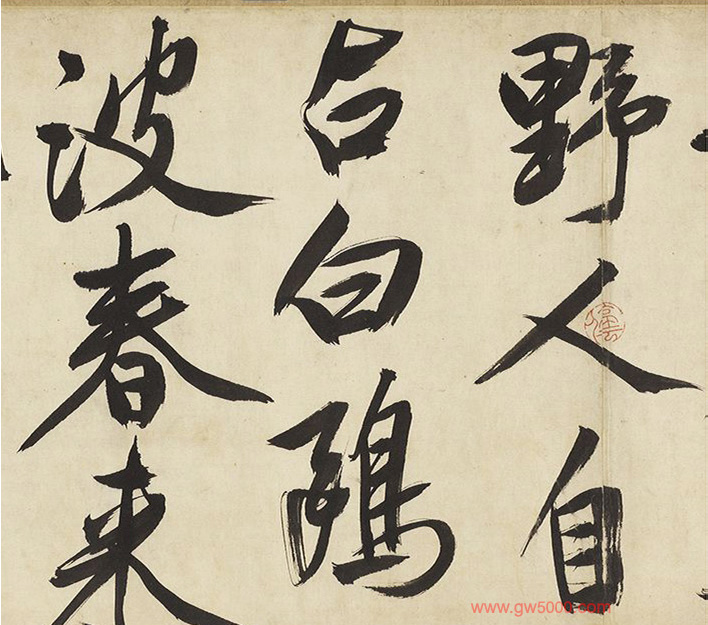 野人自
占白鷗
波春来
www.gw5000.com